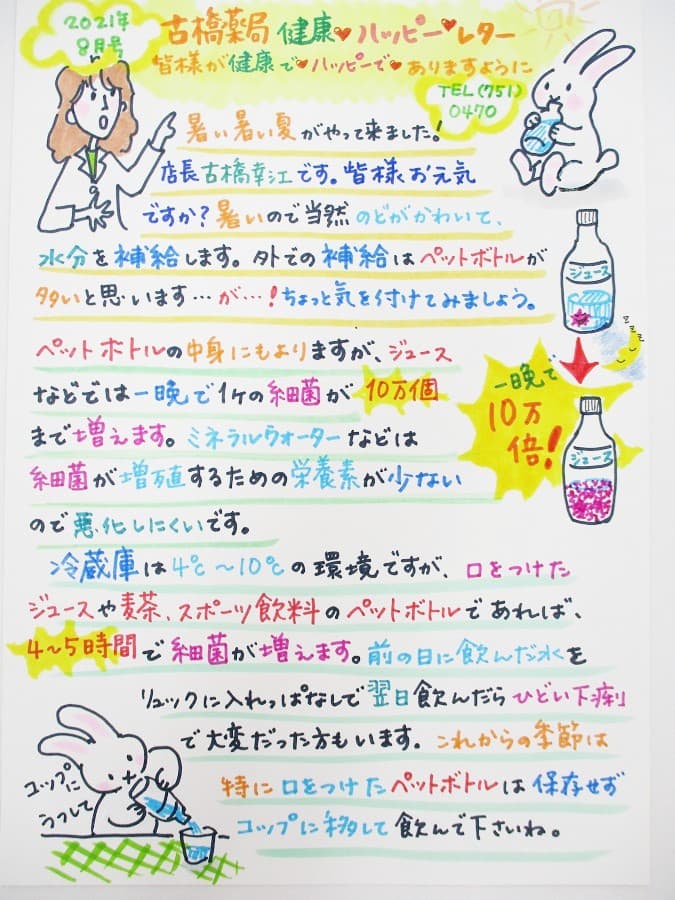 2021年
8月号
古橋薬局 健康♥ハッピー♥レター
皆様が健康で♥ハッピーで♥ありますように
TEL(751)
0470
暑い暑い夏がやって来ました!
店長古橋幸江です。皆様お元気
ですか?暑いので当然のどがかわいて、
水分を補給します。外での補給はペットボトルが
多いと思います…が…!ちょっと気を付けてみましょう。
ジュース
ペットボトルの中身にもよりますが、ジュース
などでは一晩で1ヶの細菌が10万個
まで増えます。ミネラルウォーターなどは
細菌が増殖するための栄養素が少ない
ので悪化しにくいです。
zzzz
一晩で
10万
倍!
ジュース
冷蔵庫は4℃~10℃の環境ですが、口をつけた
ジュースや麦茶、スポーツ飲料のペットボトルであれば、
4~5時間で細菌が増えます。前の日に飲んだ水を
リュックに入れっぱなしで翌日飲んだらひどい下痢
で大変だった方もいます。これからの季節は
特に口をつけたペットボトルは保存せず
コップに移して飲んで下さいね。
コップに
うつして